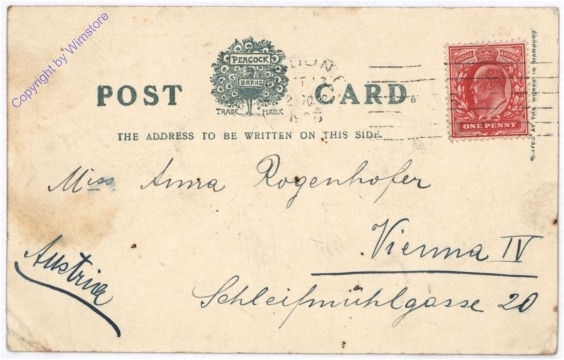 Copyright by Wimstore
PEACOCK
BRAND
POST CARD.
TRADE MARK
THE ADDRESS TO BE WRITTEN ON THIS SIDE.
ONE PENNY
Miss Anna Rogenhofer
Vienna IV
Austria
Schleifmühlgasse 20